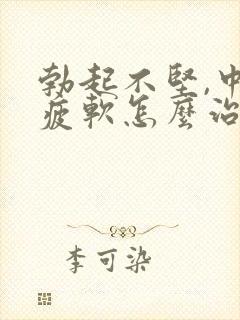 勃起不堅,中
疲軟怎麼治
李可染